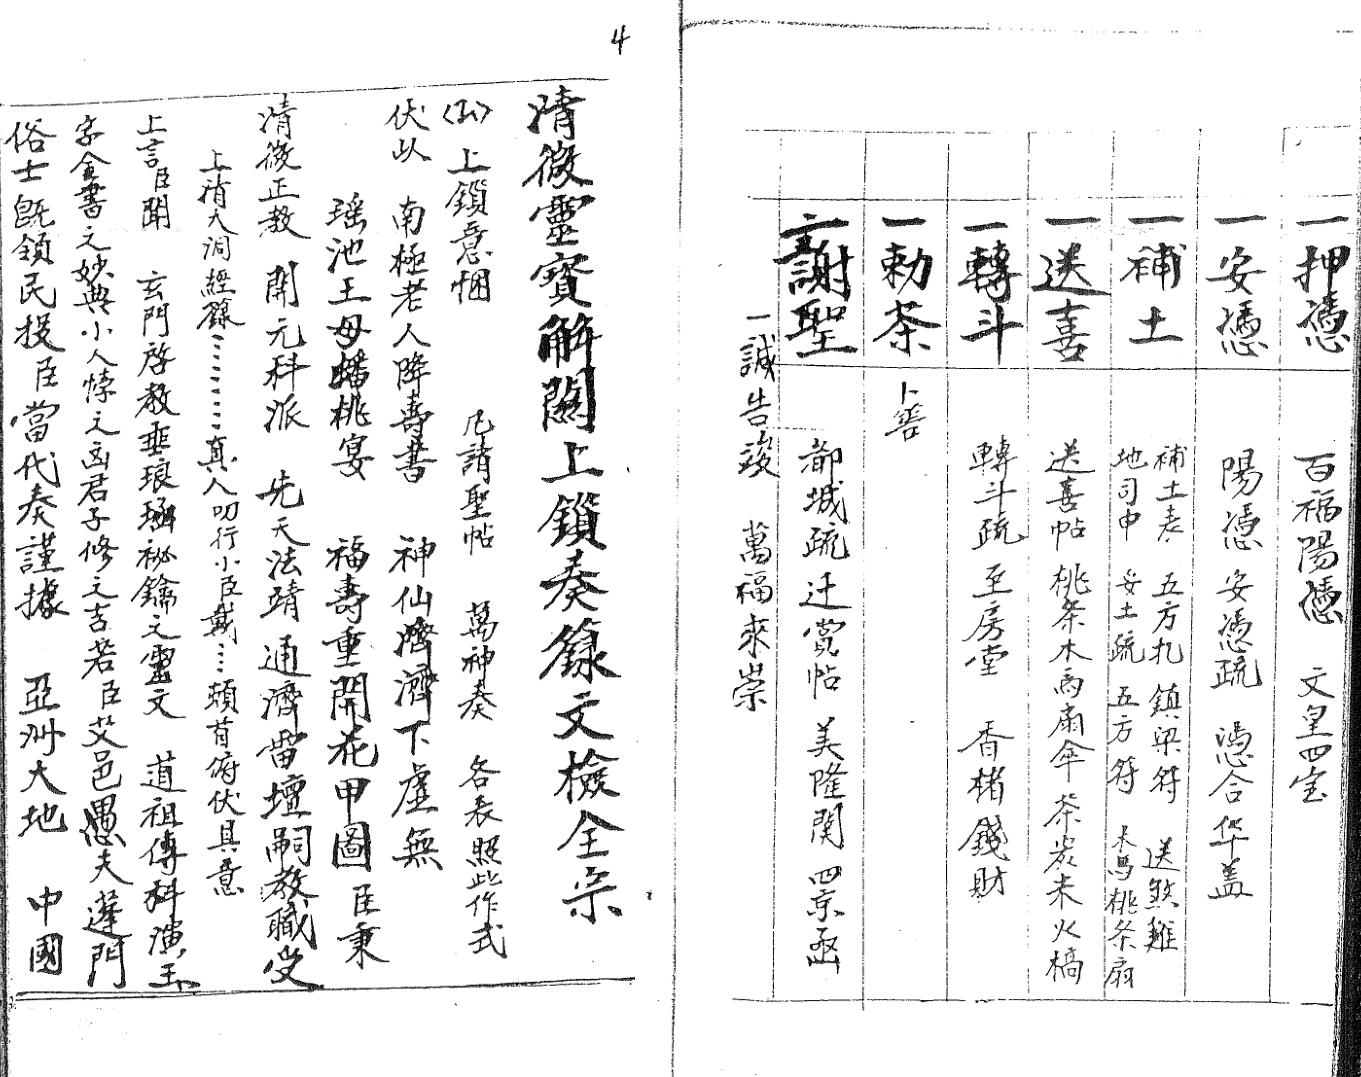 一押憑 百福陽憑 文皇四宝
一安憑 陽憑 安憑疏 憑合华盖
一補土 補土表 五方扎 鎮梁符 送煞雞
地司申 安土疏 五方符 木馬桃条扇
一送喜 送喜帖 桃条木馬扇伞 茶炭米火槁
一轉斗 轉斗疏 至房堂 香楮錢財
一勅茶 卜筶
一謝聖 都城疏 迁賞帖 美隆関 四京函
一誠告竣 萬福來崇
4
清微靈寳解関上鎖奏籙文檢全宗
上鎖意悃 凡請聖帖 萬神奏 各表照此作式
伏以 南極老人降壽書 神仙濟濟下虛無
瑶池王母蟠桃宴 福壽重開花甲圖 臣秉
清微正教 開元科派 先天法靖 通濟雷壇嗣教職受
上清大洞經籙………真人叨行小臣戴… 頬首俯伏具意
上言臣聞 玄門啓教垂琅函祕鑰之靈文 道祖傳科演玉
字金書之妙典小人悖之凶君子修之吉若臣艾邑愚夫蓬門
俗士既領民投臣當代奏謹據 亞洲大地 中國